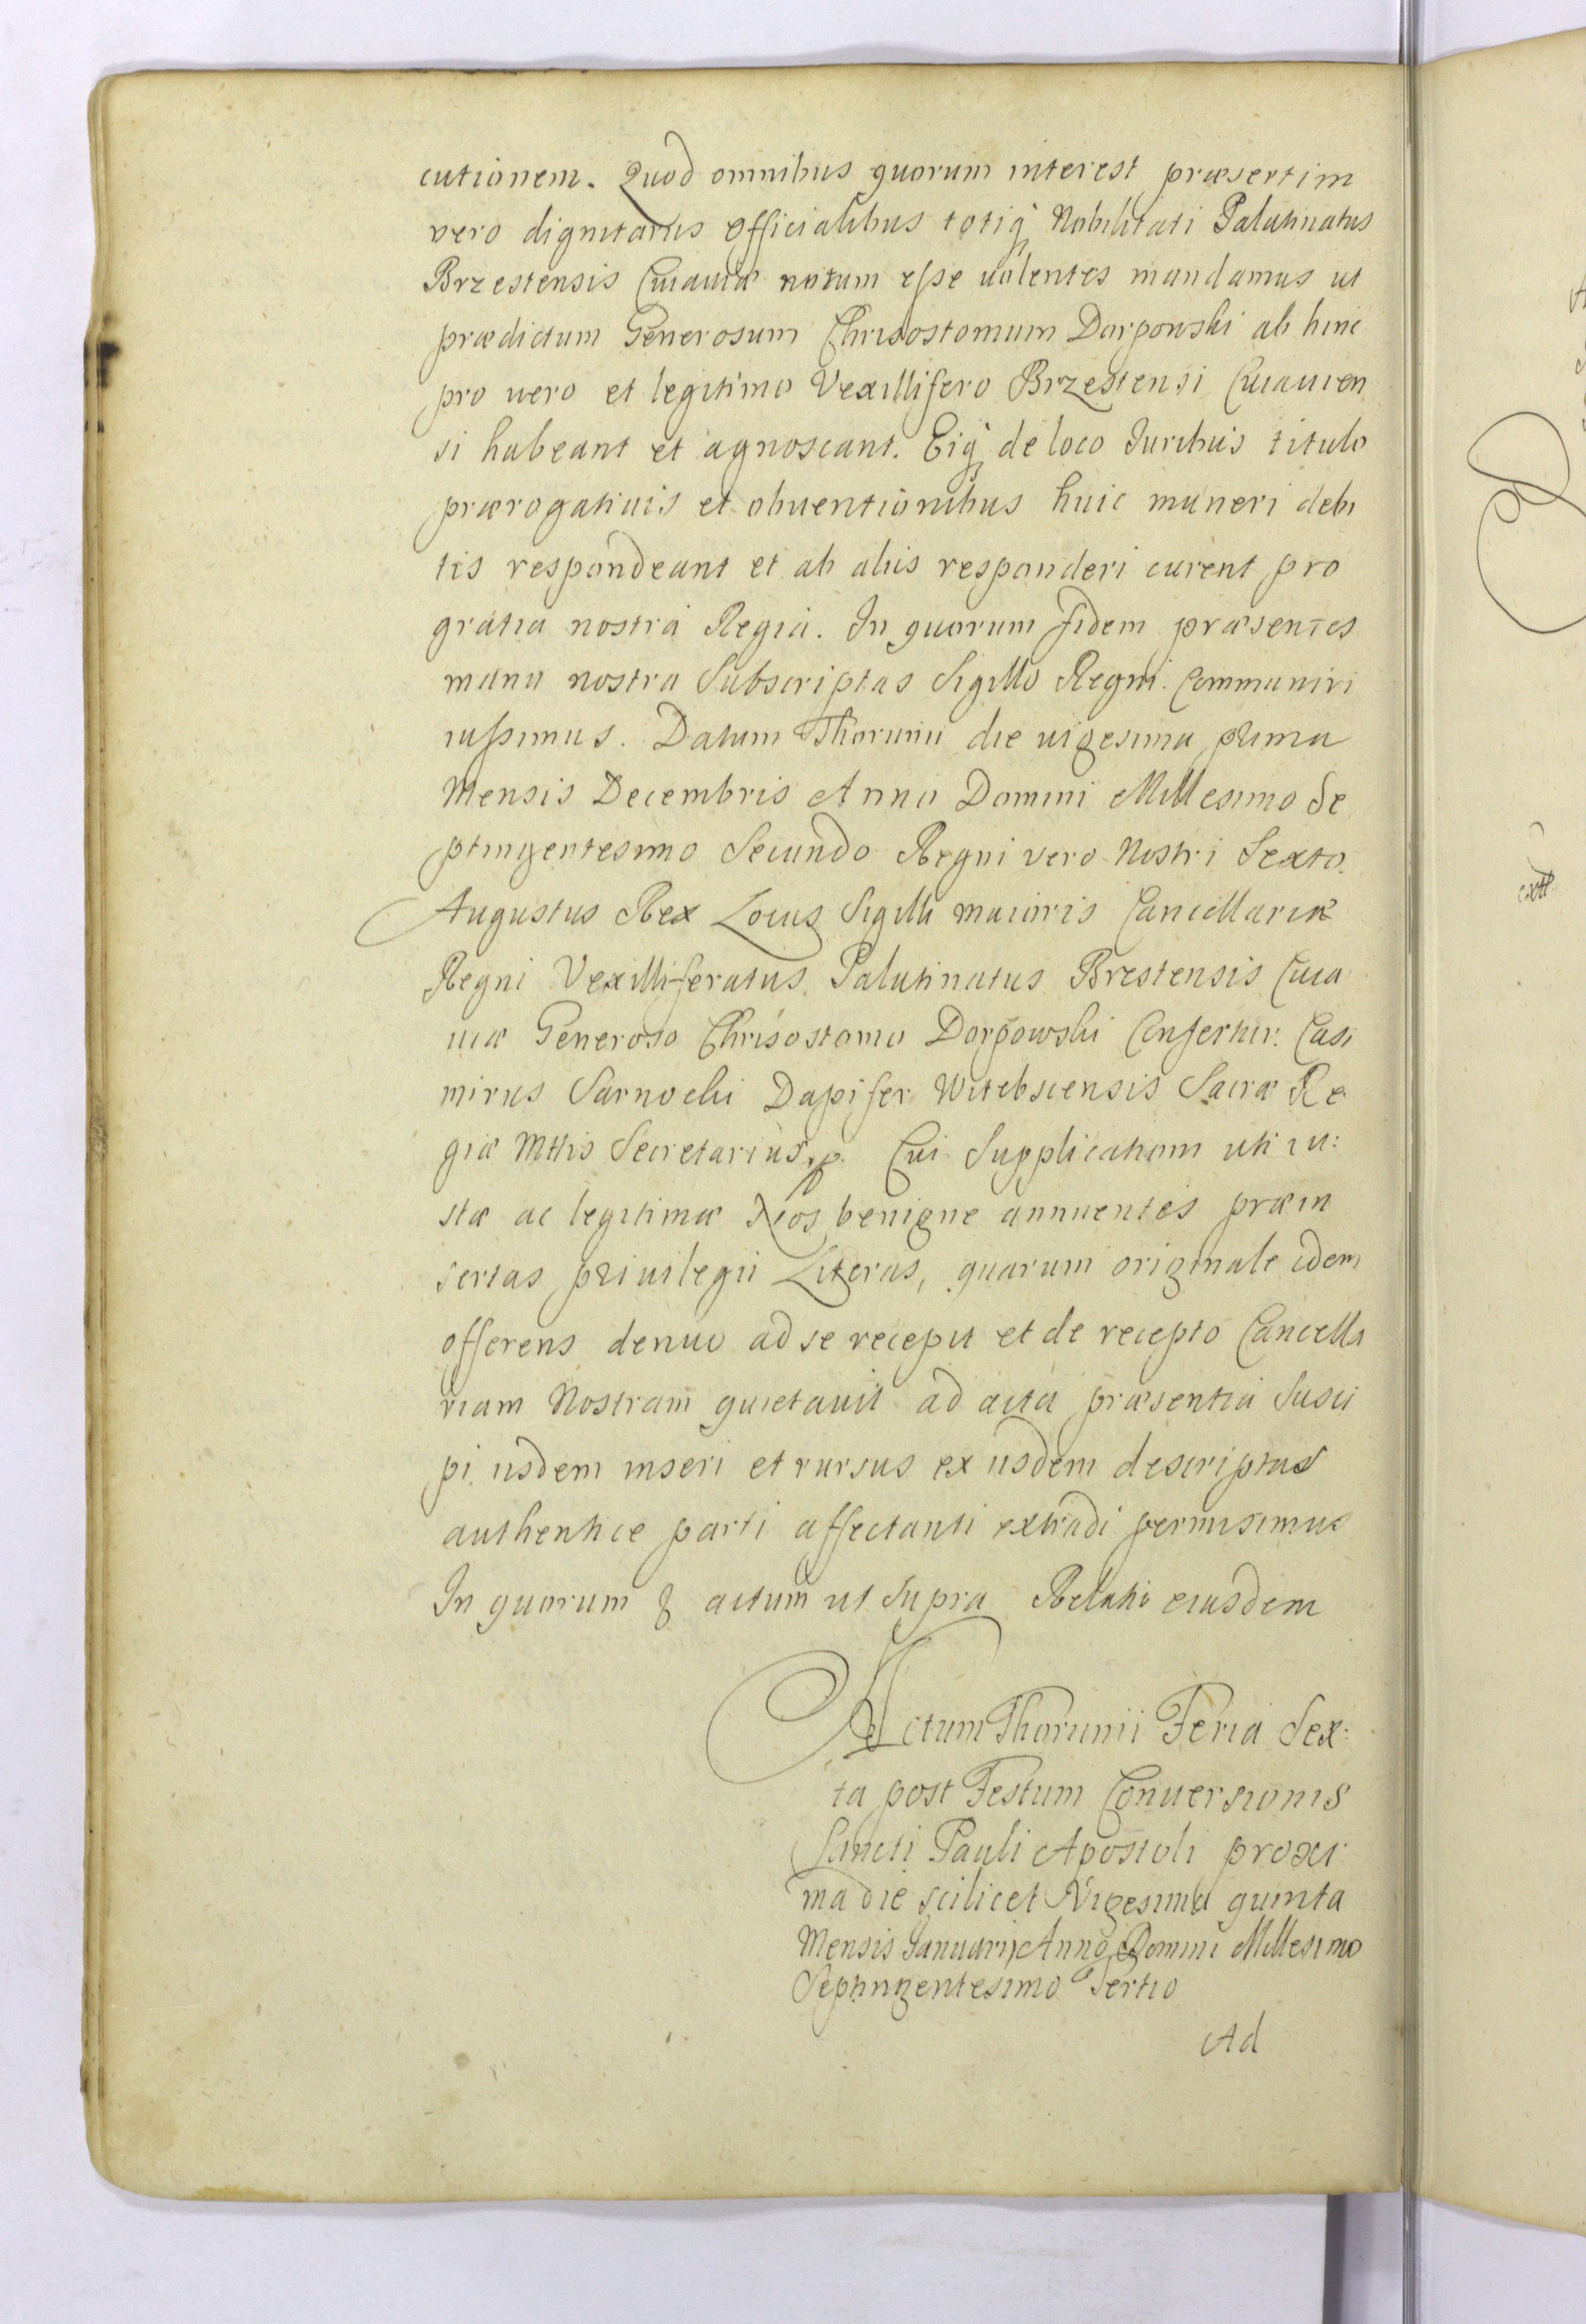 cutionem. Quod omnibus quorum interest præsertim
vero dignitariis Officialibus totiq Nobilitati Palatinatus
Brzestensis Cuiauiæ notum esse uolentes mandamus ut
prædictum Generosum Chrisostomum Dorpowski ab hinc
pro uero et legitimo Vexillifero Brzestensi Cuiauien
si habeant et agnoscant. Eiq de loco Juribus titulo
prærogatiuis et obuentionibus huic muneri debi
tis respondeant et ab aliis responderi curent pro
gratia nostra Regia. In quorum fidem præsentes
manu nostra Subscriptas Sigillo Regni. Communiri
iussimus. Datum Thorunii die uigesima prima
Mensis Decembris Anno Domini Millesimo Se
ptingentesimo Secundo Regni vero Nostri Sexto.
Augustus Rex Locus Sigilli maioris Cancellariæ
Regni Vexilliferatus Palatinatus Brestensis Cuia
uiæ Generoso Chrisostomo Dorpowski Confertur. Casi
mirus Sarnocki Dapifer Witebscensis Sacræ Re
giæ Mttis Secretarius. Cui Supplicationi uti iu:
stæ ac legitimæ Nos benigne annuentes præin
sertas priuilegii Literas, quarum originale idem
offerens denuo ad se recepit et de recepto Cancella
riam Nostram quietauit ad acta præsentia Susci
pi iisdem inseri et rursus ex iisdem descriptas
authentice parti affectanti extradi permisimus
In quorum & actum ut Supra Relatio eiusdem
Actum Thorunii Feria Sex:
ta post Festum Conuersionis
Sancti Pauli Apostoli proxi:
ma die scilicet Vigesima quinta
Mensis Januarij Anno Domini Millesimo
Septingentesimo Tertio
Ad